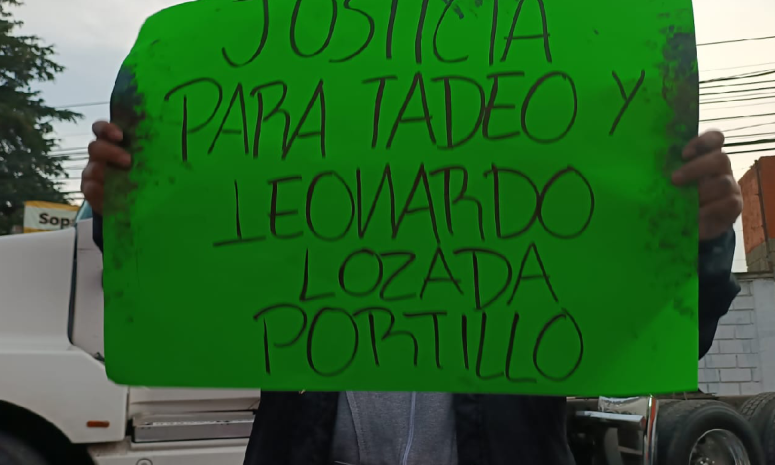 JUSTICIA
PARA TADEO Y
LEONARDO
LOZADA
PORTILLO
Sop